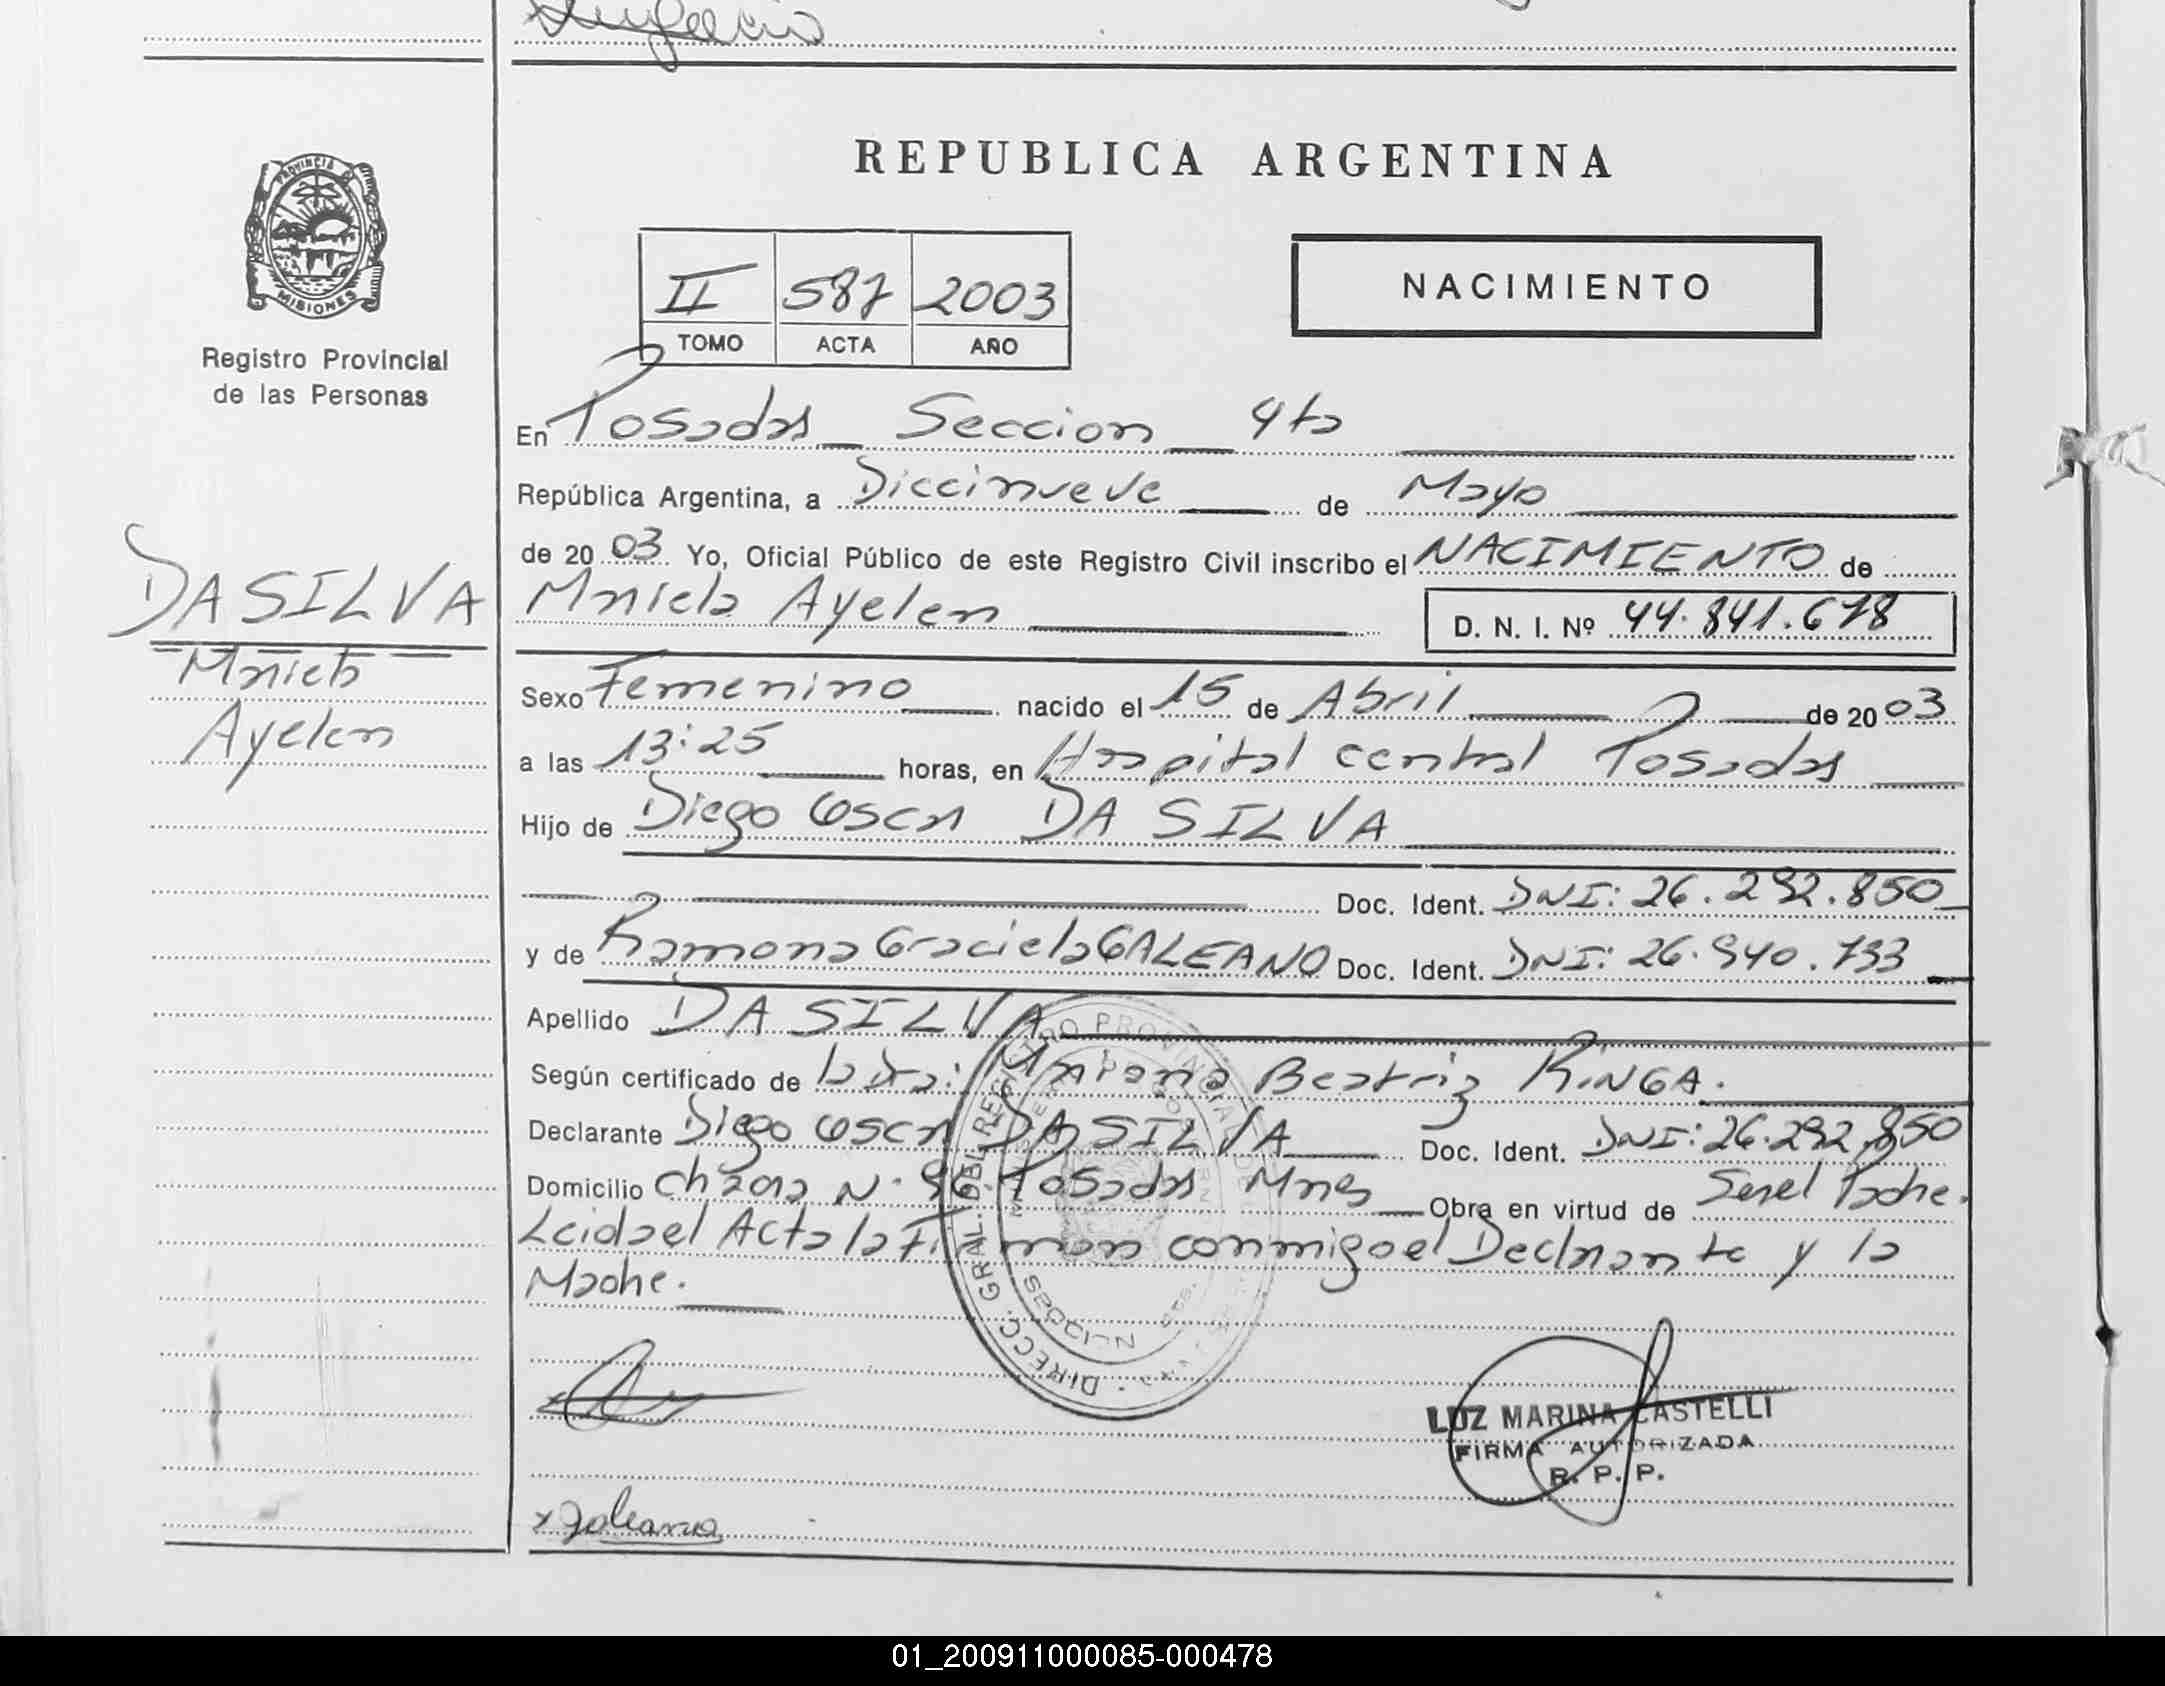 REPUBLICA ARGENTINA
PROVINCIA D
MISIONES
Registro Provincial
de las Personas
II 587 2003
TOMO ACTA AÑO
NACIMIENTO
En Posadas Seccion 4ta
República Argentina, a Diecinueve de Mayo
de 20 03 Yo, Oficial Público de este Registro Civil inscribo el NACIMIENTO de
Mariela Ayelen D. N. I. Nº 44.841.678
DA SILVA
Mariela
Ayelen
Sexo Femenino nacido el 15 de Abril de 20 03
a las 13:25 horas, en Hospital central Posadas
Hijo de Diego Oscar DA SILVA
Doc. Ident. DNI: 26.292.850
y de Ramona Graciela GALEANO Doc. Ident. DNI: 26.940.733
Apellido DA SILVA
Según certificado de la Dra: Mariana Beatriz RINGA.
Declarante Diego Oscar DA SILVA Doc. Ident. DNI: 26.292.850
Domicilio Chacra Nº 96 Posadas Mnes Obra en virtud de Ser el Padre.
Leida el Acta la Firman conmigo el Declarante y la
Madre.
DIRECC. GRAL. DEL REGISTRO PROVINCIAL DE
LUZ MARINA CASTELLI
FIRMA AUTORIZADA
R. P. P.
x Galeano
01_200911000085-000478